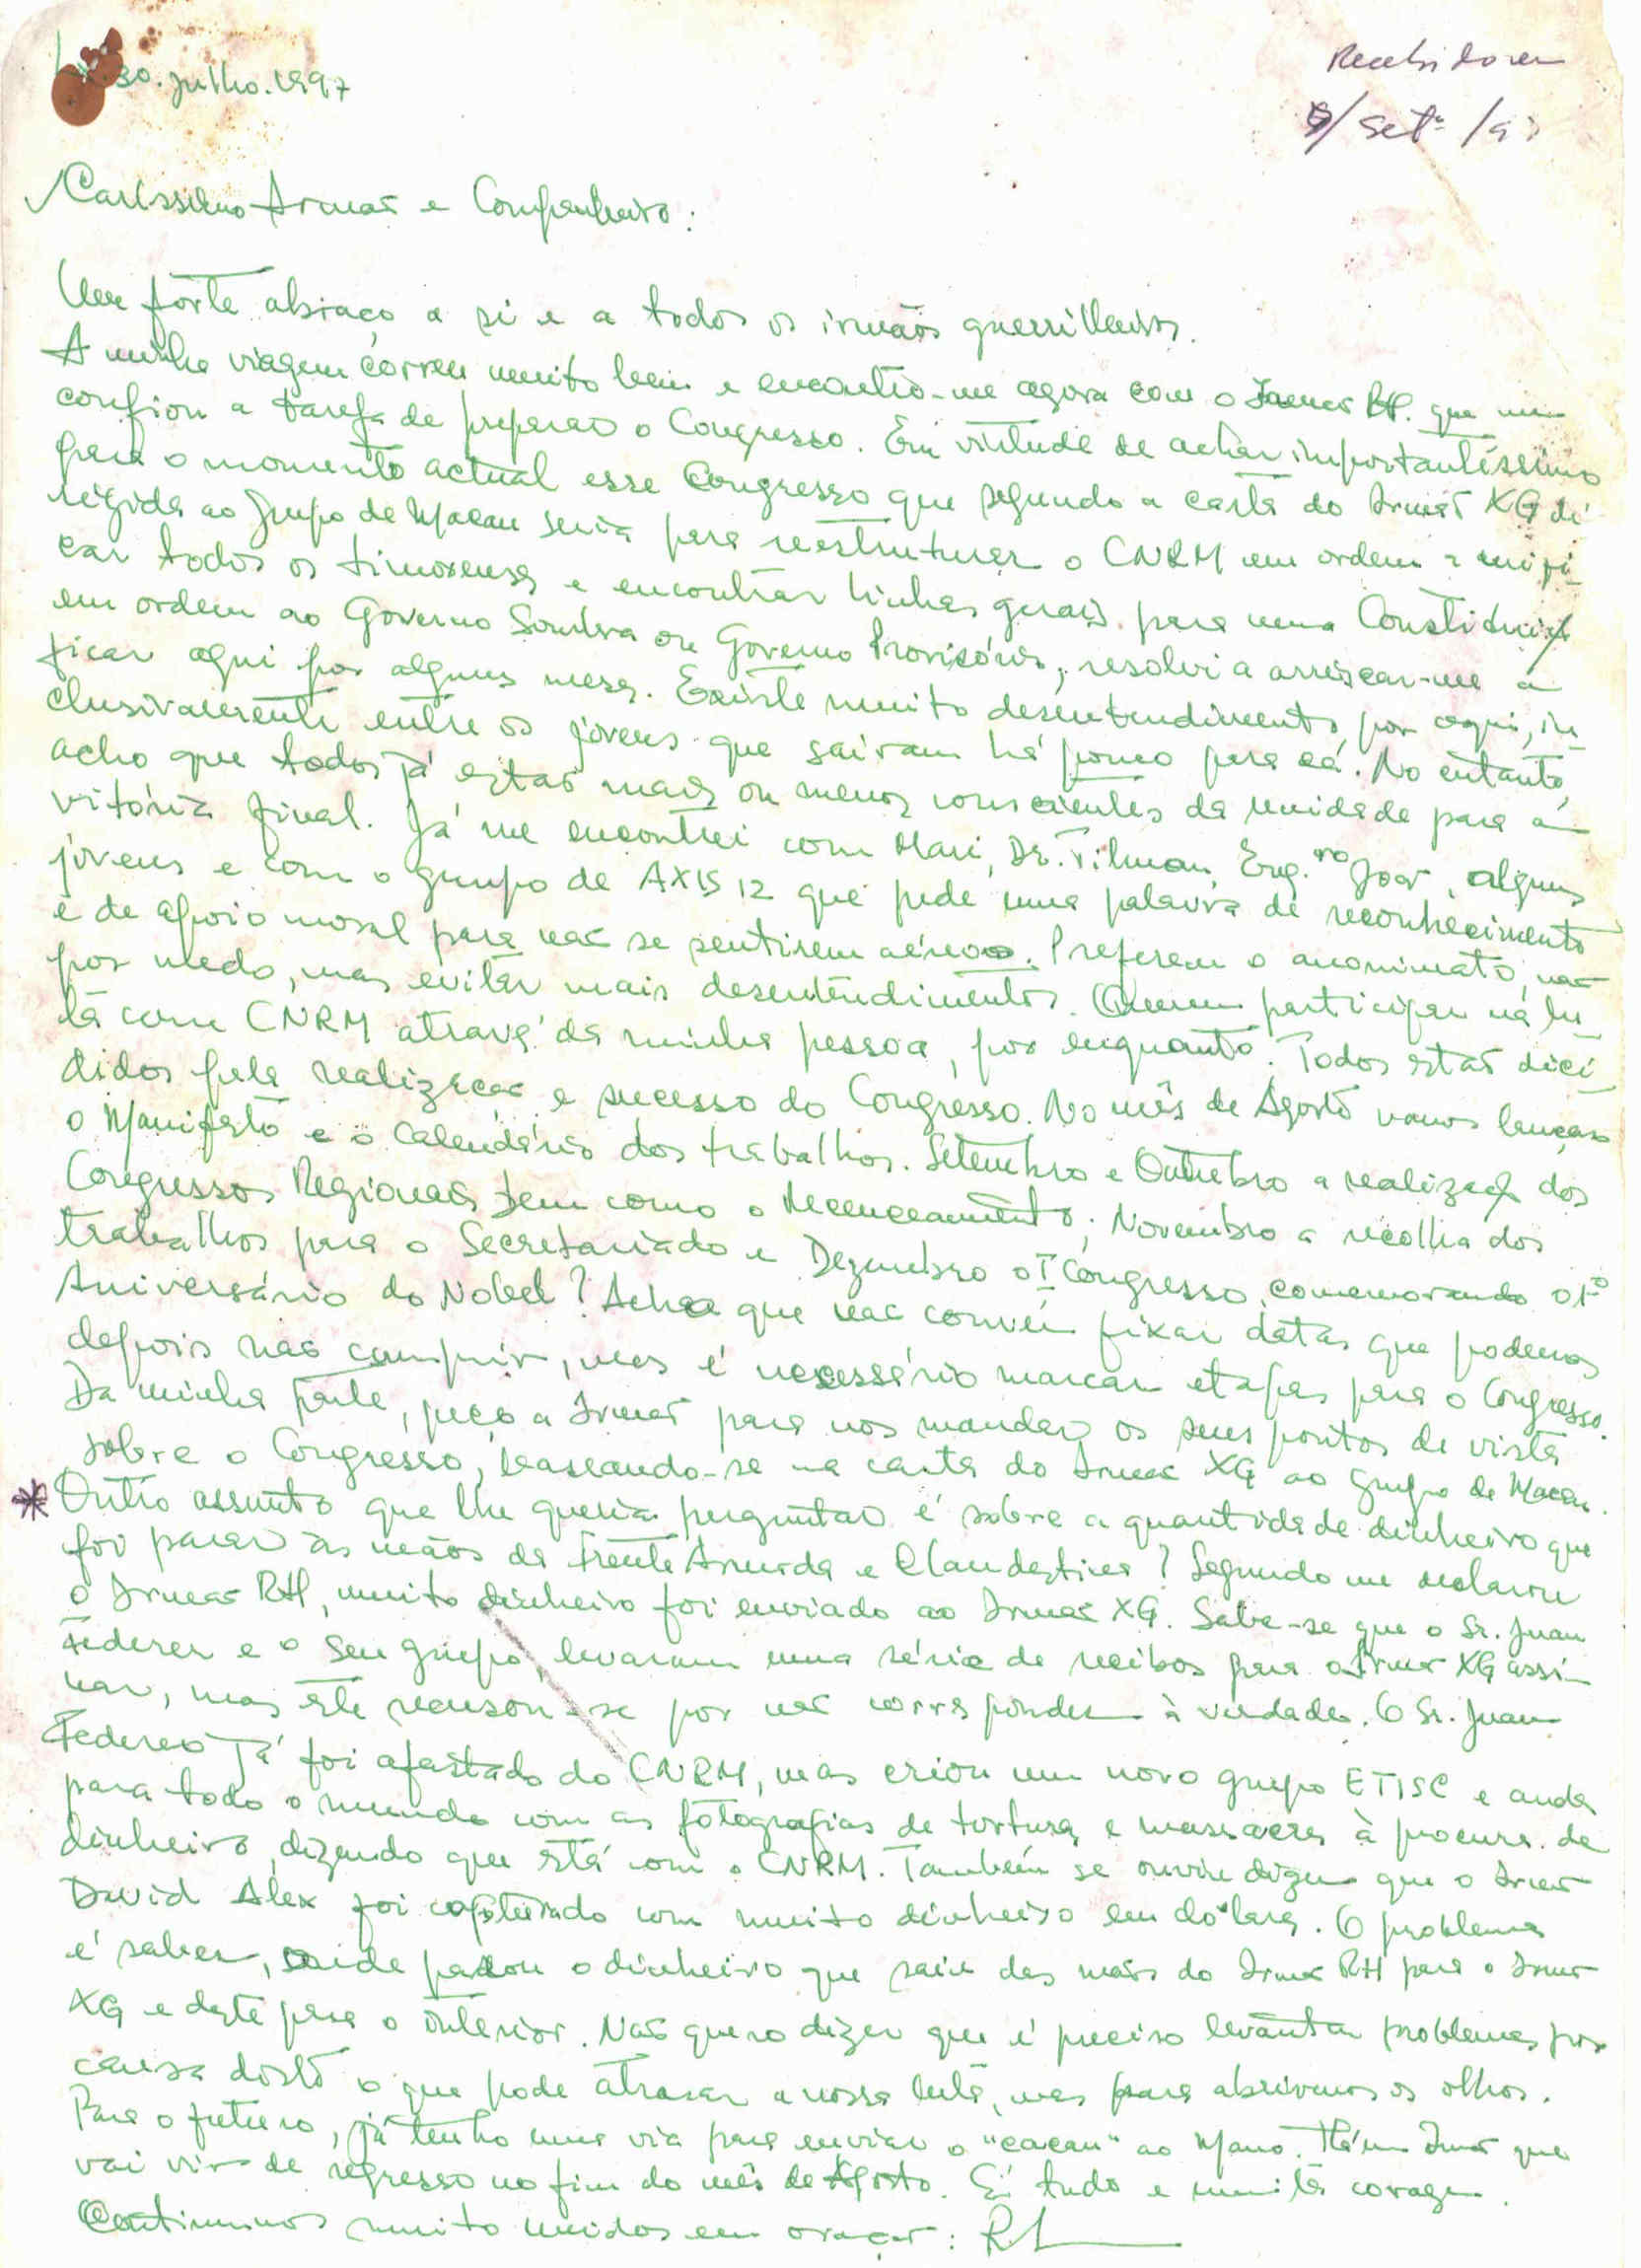 30.Julho.1997
Recebido em
9/setº/97
Caríssimo Irmão e Companheiro:
Um forte abraço a si e a todos os irmãos guerrilheiros.
A minha viagem correu muito bem e encontro-me agora com o Irmão RH. que me
confiou a tarefa de preparar o Congresso. Em virtude de achar importantíssimo
para o momento actual esse Congresso que segundo a carta do Irmão XG di-
rigida ao Grupo de Macau seria para reestruturar o CNRM em ordem a unifi-
car todos os timorenses e encontrar linhas gerais para uma Constituição
em ordem ao Governo Sombra ou Governo Provisório, resolvi a arriscar-me a
ficar aqui por alguns meses. Existe muito desentendimento, por aqui, in-
clusivamente entre os jóvens que saíram há pouco para cá. No entanto,
acho que todos já estão mais ou menos conscientes da unidade para a
vitória final. Já me encontrei com Mari, Dr. Tilman, Eng.ro João, alguns
jóvens e com o grupo de AXIS 12 que pede uma palavra de reconhecimento
e de apoio moral para não se sentirem aéreos. Preferem o anonimato, não
por medo, mas evitar mais desentendimentos. Querem participar na lu-
ta com CNRM através da minha pessoa, por enquanto. Todos estão deci-
didos pela realização e sucesso do Congresso. No mês de Agosto vamos lançar
o Manifesto e o Calendário dos trabalhos. Setembro e Outubro a realização dos
Congressos Regionais bem como o Recenceamento; Novembro a recolha dos
trabalhos para o Secretariado e Dezembro o I Congresso, comemorando o 1º
Aniversário do Nobel? Acho que não convém fixar datas que podemos
depois não cumprir, mas é necessário marcar etapas para o Congresso.
Da minha parte, peço a Irmão para nos mandar os seus pontos de vista
sobre o Congresso, baseando-se na carta do Irmão XG ao Grupo de Macau.
* Outro assunto que lhe queria perguntar é sobre a quantidade dinheiro que
foi parar às mãos da Frente Armada e Clandestina? Segundo me declarou
o Irmão RH, muito dinheiro foi enviado ao Irmão XG. Sabe-se que o Sr. Juan
Federer e o seu grupo, levaram uma série de recibos para o Irmão XG assi-
nar, mas este recusou-se por não corresponder à verdade. O Sr. Juan
Federer já foi afastado do CNRM, mas criou um novo grupo ETISC e anda
para todo o mundo com as fotografias de tortura e massacres à procura de
dinheiro, dizendo que está com o CNRM. Também se ouviu dizer que o Irmão
David Alex foi capturado com muito dinheiro em dólares. O problema
é saber, onde parou o dinheiro que saiu das mãos do Irmão RH para o Irmão
XG e deste para o interior. Não quero dizer que é preciso levantar problemas por
causa disto o que pode atrasar a nossa luta, mas para abrirmos os olhos.
Para o futuro, já tenho uma via para enviar o "cacau" ao Mano. Há um Irmão que
vai vir de regresso no fim do mês de Agosto. É tudo e muita coragem.
Continuemos muito unidos em oração: RL